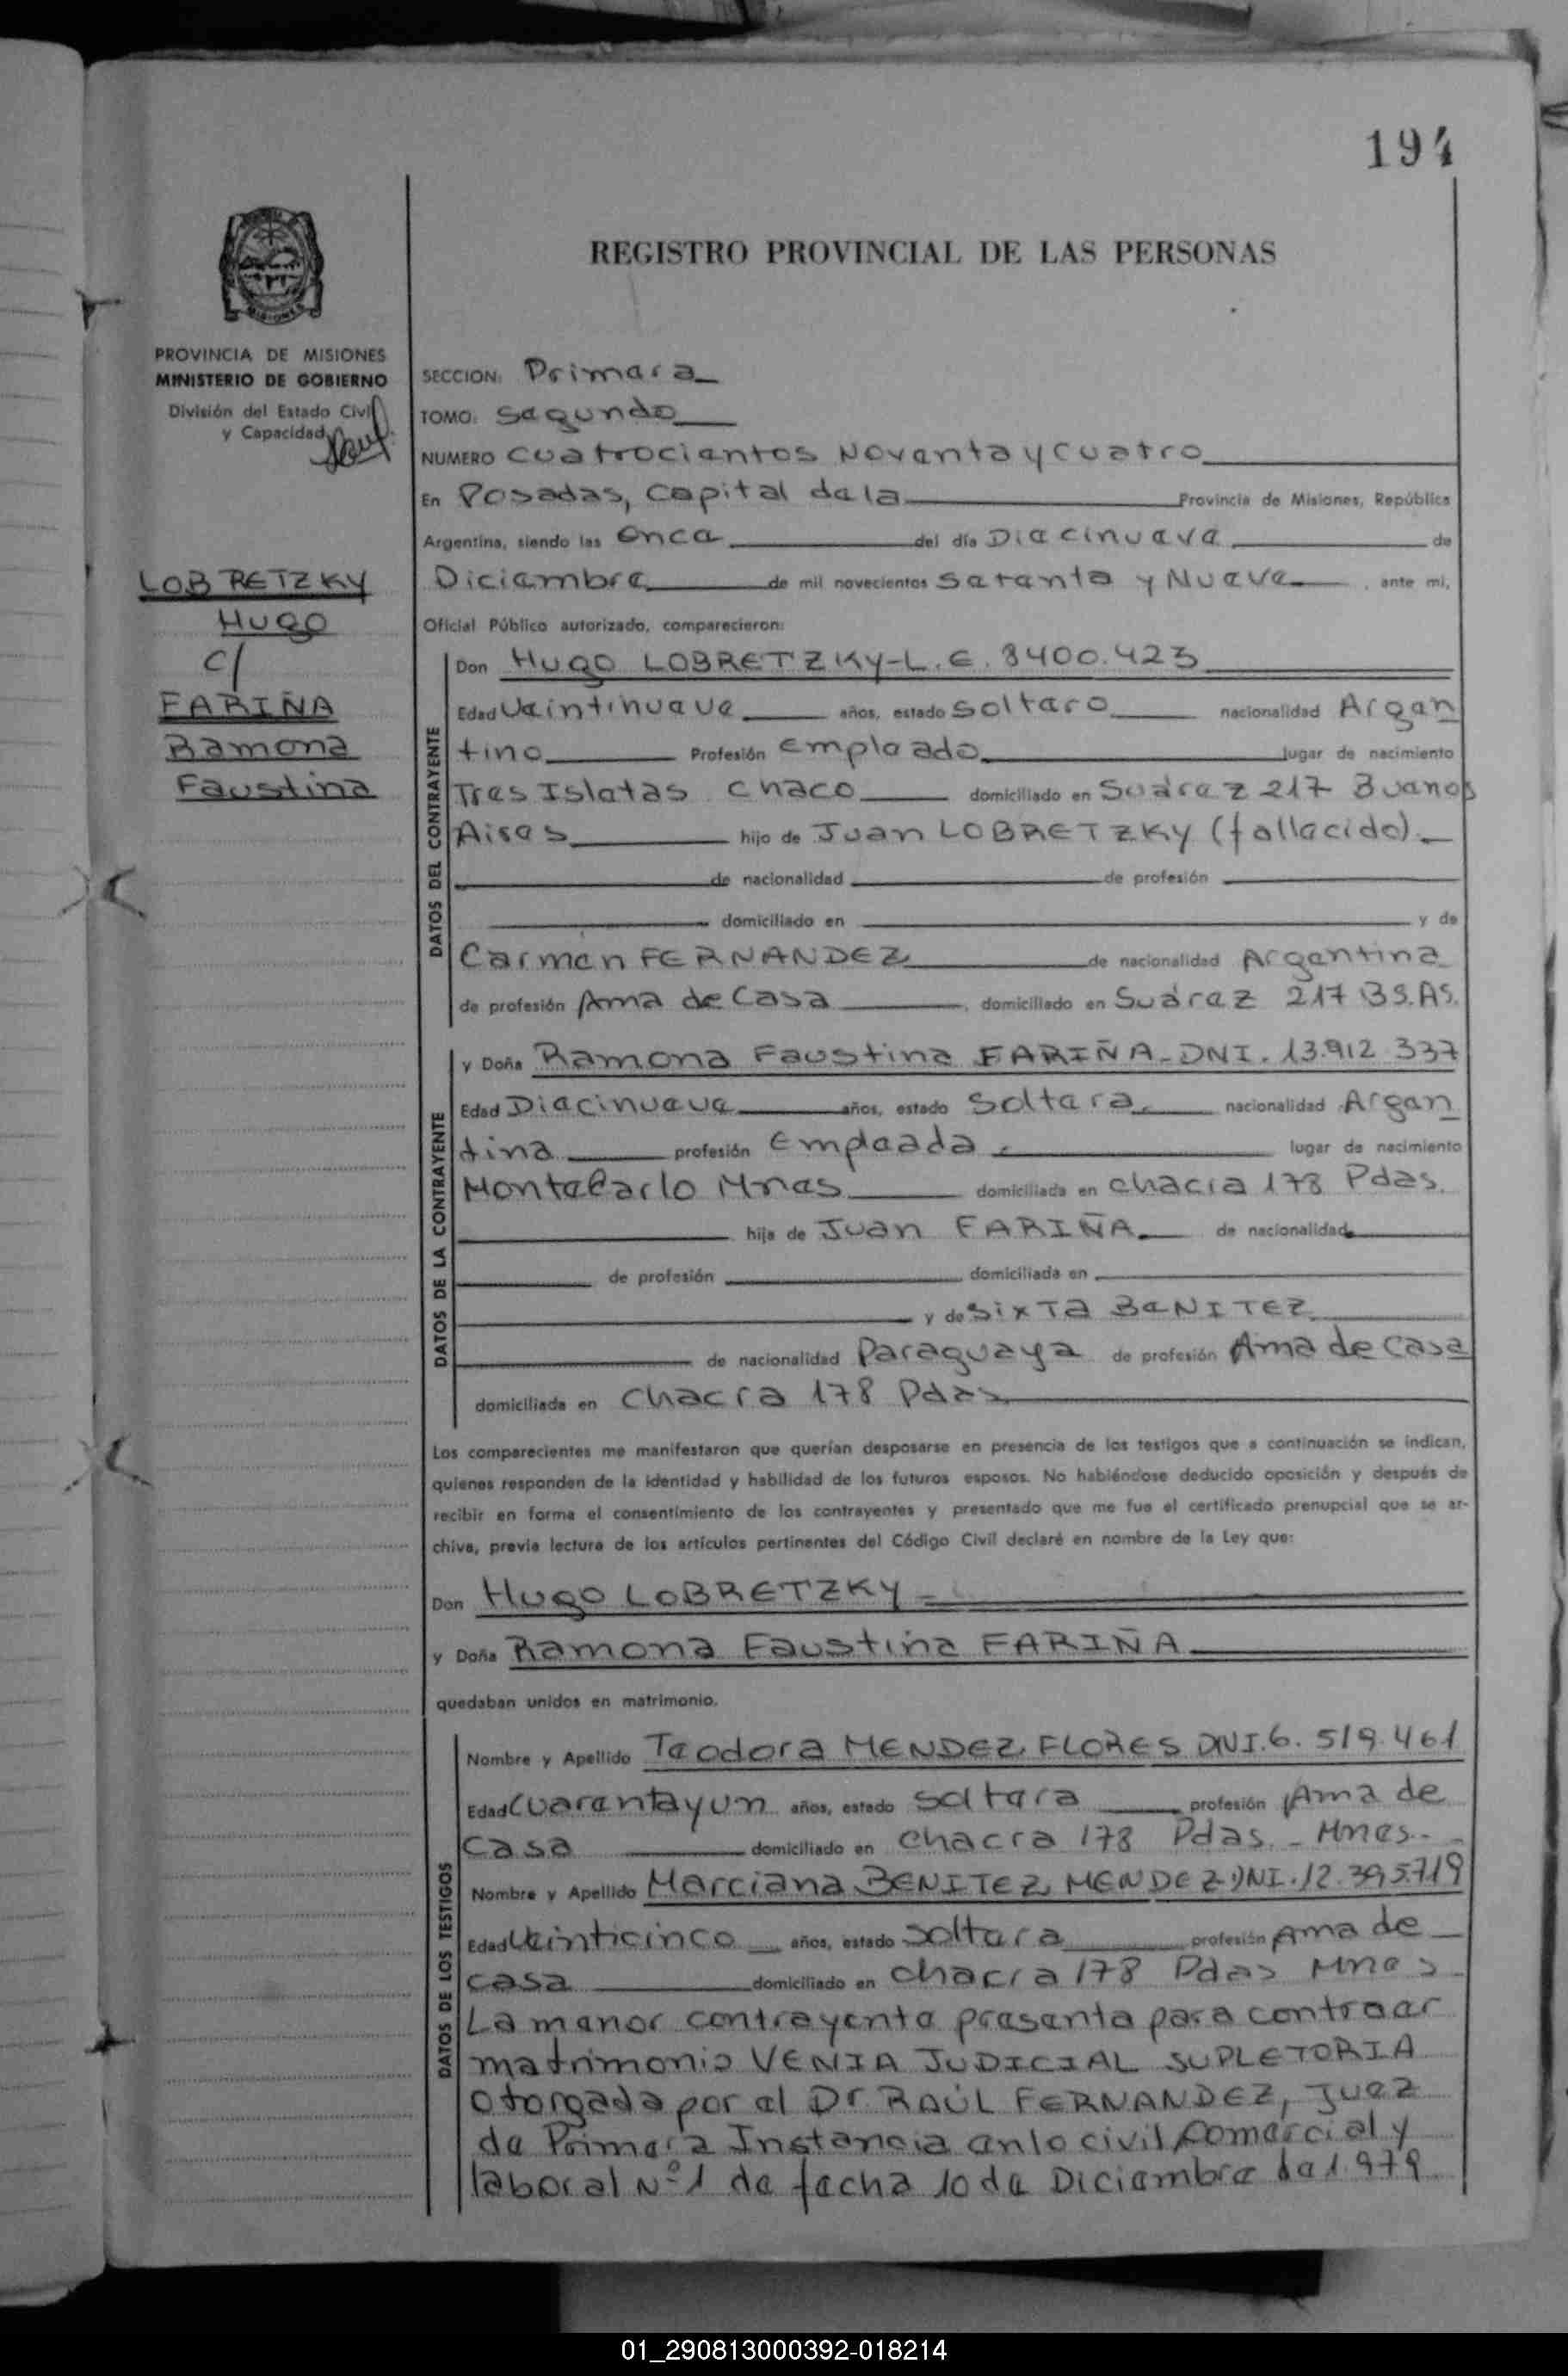 194
REGISTRO PROVINCIAL DE LAS PERSONAS
PROVINCIA DE MISIONES
MINISTERIO DE GOBIERNO
División del Estado Civil
y Capacidad
LOBRETZKY
Hugo
c/
FARIÑA
Ramona
Faustina
SECCION: Primera
TOMO: Segundo
NUMERO Cuatrocientos Noventa y cuatro
En Posadas, Capital de la Provincia de Misiones, República
Argentina, siendo las Once del día Diecinueve de
Diciembre de mil novecientos Setenta y Nueve, ante mí,
Oficial Público autorizado, comparecieron:
DATOS DEL CONTRAYENTE
Don Hugo LOBRETZKY-L.E. 8400.423
Edad Veintinueve años, estado Soltero nacionalidad Argen
tino Profesión Empleado lugar de nacimiento
Tres Isletas Chaco domiciliado en Suárez 217 Buenos
Aires hijo de Juan LOBRETZKY (fallecido).
de nacionalidad de profesión
domiciliado en y de
Carmen FERNANDEZ de nacionalidad Argentina
de profesión Ama de Casa, domiciliado en Suárez 217 BS.AS.
DATOS DE LA CONTRAYENTE
y Doña Ramona Faustina FARIÑA-DNI. 13.912.337
Edad Diecinueve años, estado Soltera nacionalidad Argen
tina profesión Empleada lugar de nacimiento
MonteCarlo Mnes domiciliada en chacra 178 Pdas.
hija de Juan FARIÑA de nacionalidad
de profesión domiciliada en
y de Sixta BENITEZ
de nacionalidad Paraguaya de profesión Ama de Casa
domiciliada en Chacra 178 Pdas
Los comparecientes me manifestaron que querían desposarse en presencia de los testigos que a continuación se indican,
quienes responden de la identidad y habilidad de los futuros esposos. No habiéndose deducido oposición y después de
recibir en forma el consentimiento de los contrayentes y presentado que me fue el certificado prenupcial que se ar-
chiva, previa lectura de los artículos pertinentes del Código Civil declaré en nombre de la Ley que:
Don Hugo LOBRETZKY
y Doña Ramona Faustina FARIÑA
quedaban unidos en matrimonio.
DATOS DE LOS TESTIGOS
Nombre y Apellido Teodora MENDEZ FLORES DNI.6.519.461
Edad Cuarenta y un años, estado soltera profesión Ama de
Casa domiciliado en chacra 178 Pdas. - Mnes.-
Nombre y Apellido Marciana BENITEZ MENDEZ DNI.12.395.719
Edad Veinticinco años, estado Soltera profesión Ama de
casa domiciliado en Chacra 178 Pdas Mnes
La menor contrayente presenta para contraer
matrimonio VENIA JUDICIAL SUPLETORIA
otorgada por el Dr. RAÚL FERNANDEZ, Juez
de Primera Instancia en lo civil Comercial y
laboral Nº 1 de fecha 10 de Diciembre de 1.979
01_290813000392-018214